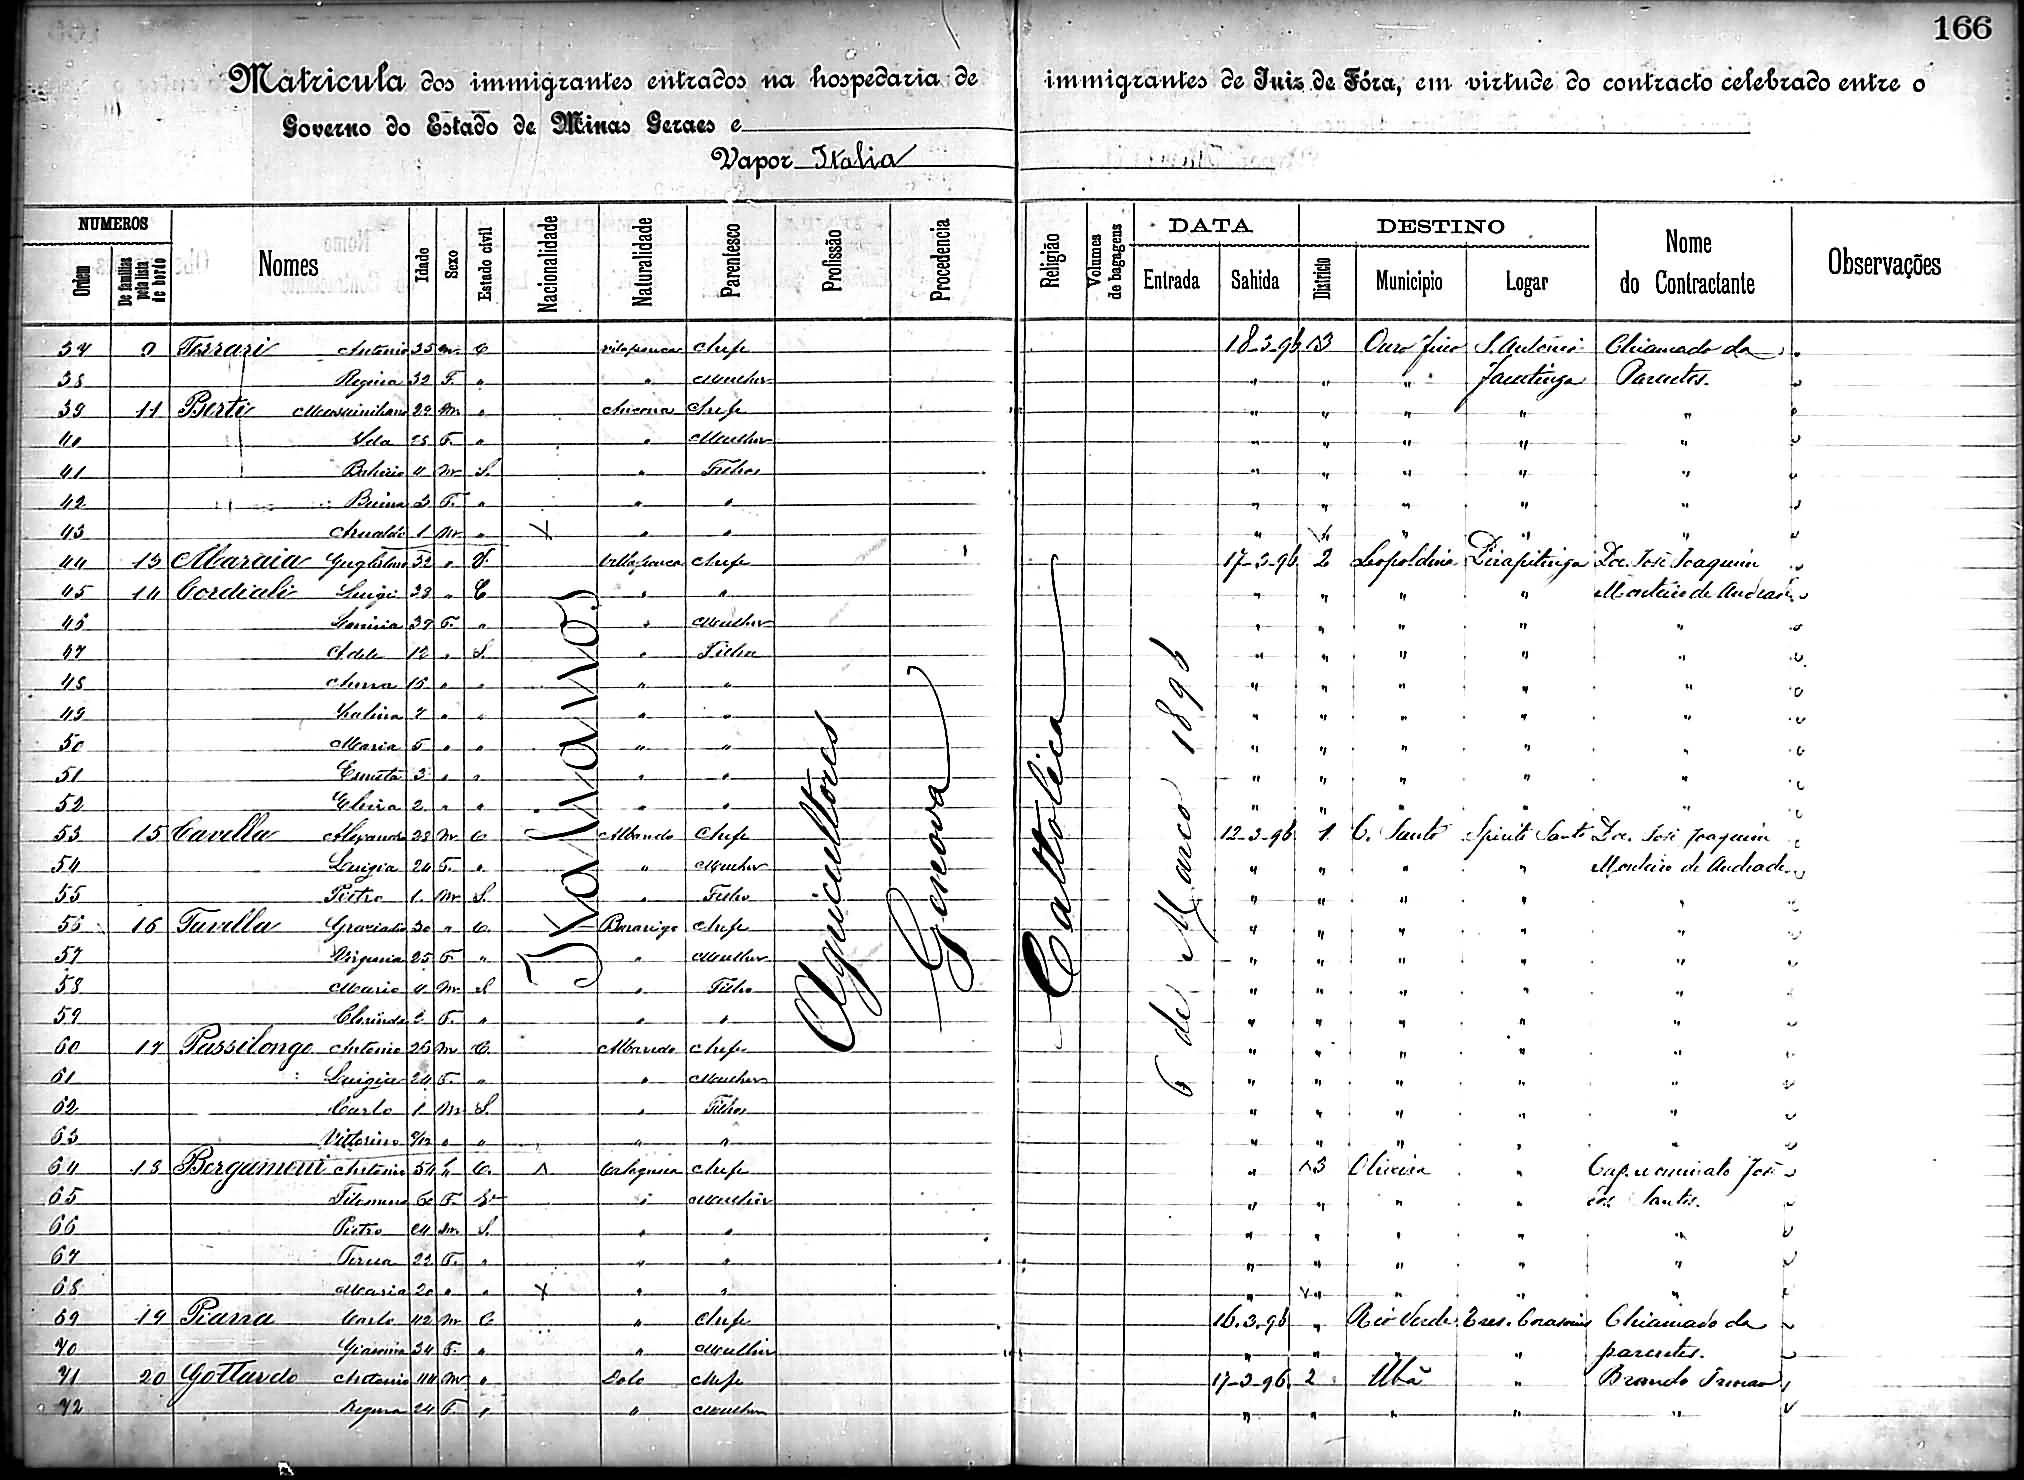 166
Matricula dos immigrantes entrados na hospedaria de immigrantes de Juiz de Fóra, em virtude do contracto celebrado entre o
Governo do Estado de Minas Geraes e
Vapor Italia
NUMEROS DATA DESTINO
Ordem De familias pela lista de bordo Nomes Idade Sexo Estado civil Nacionalidade Naturalidade Parentesco Profissão Procedencia Religião Volumes de bagagens Entrada Sahida Districto Municipio Logar Nome do Contractante Observações
Italianos
Agricultores
Genova
Cattolica
6 de Março 1896
37 9 Ferrari Antonio 35 m. C Chefe 18-3-96 3 Ouro fino S. Antonio Chiamado da
38 Regina 32 F. " " Mulher " " " Jacutinga Parentes.
39 11 Berti 29 m " Ancona Chefe " " " " "
40 F. " " Mulher " " " " "
41 4 m S. " Filhos " " " " "
42 3 F. " " " " " " " "
43 Arnaldo 1 m " X " " " " " "
44 13 Maraia Guglielmo 32 " V. Villafranca Chefe 17-3-96 2 Leopoldina Pirapitinga Dor. José Joaquim
45 14 Cordiali Luigi 38 " C " " " " " " Monteiro de Andrade
46 37 F. " " Mulher " " " " "
47 Adele 12 " S. " Filha " " " " "
48 15 " " " " " " " " "
49 7 " " " " " " " " "
50 Maria 5 " " " " " " " " "
51 Ernesta 3 " " " " " " " " "
52 Elvira 2 " " " " " " " " "
53 15 Cavella 28 m C Chefe 12-3-96 1 E. Santo Spirito Santo Dor. José Joaquim
54 Luigia 24 F. " " Mulher " " " " Monteiro de Andrade
55 Pietro 1 m S. " Filho " " " " "
56 16 Tavella Graziado 30 " C. Chefe " " " " "
57 Virginia 25 F. " " Mulher " " " " "
58 Mario 4 m S " Filho " " " " "
59 Clorinda 2 F. " " " " " " " "
60 17 Passilongo Antonio 26 m C. Albaredo Chefe " " " " "
61 Luigia 24 F. " " Mulher " " " " "
62 Carlo 1 m S. " Filhos " " " " "
63 Vittorino " " " " " " " " "
64 18 Bergamini Antonio 54 C. Chefe " 3 Oliveira " José
65 60 F. " Mulher " " " " dos Santos.
66 Pietro 24 m. S. " " " " " " "
67 Teresa 22 F. " " " " " " " "
68 Maria 20 " " X " " " " " " "
69 19 Piana Carlo 42 m C " Chefe 16.3.96 " Rio Verde Tres Corações Chiamado da
70 34 F. " " Mulher " " " " parentes.
71 20 Gottardo Antonio 44 m " Dolo Chefe 17-3-96 2 Ubá "
72 Regina 24 F. " " Mulher " " " " "